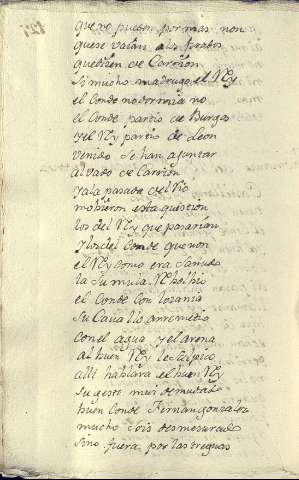 que no pueden por mas non
que se vaian a los prados
que dizen de Carrion
Si mucho madruga el Rey
el Conde no dormia no
el Conde partio de Burgos
y el Rey partio de Leon
venido se han a juntar
al vado de Carrion
y a la pasada del Rio
mobieron esta question
los del Rey que pasarian
y los del Conde que non
el Rey como era
la su mula Rebolbio
el Conde Con lozania
Su Cauallo arremetio
con el agua y el arena
al buen Rey le salpico
alli hablara el buen Rey
Su gesto mui demudado
buen Conde Fernan gonzalez
mucho Sois desmesurado
Sino fuera por las treguas